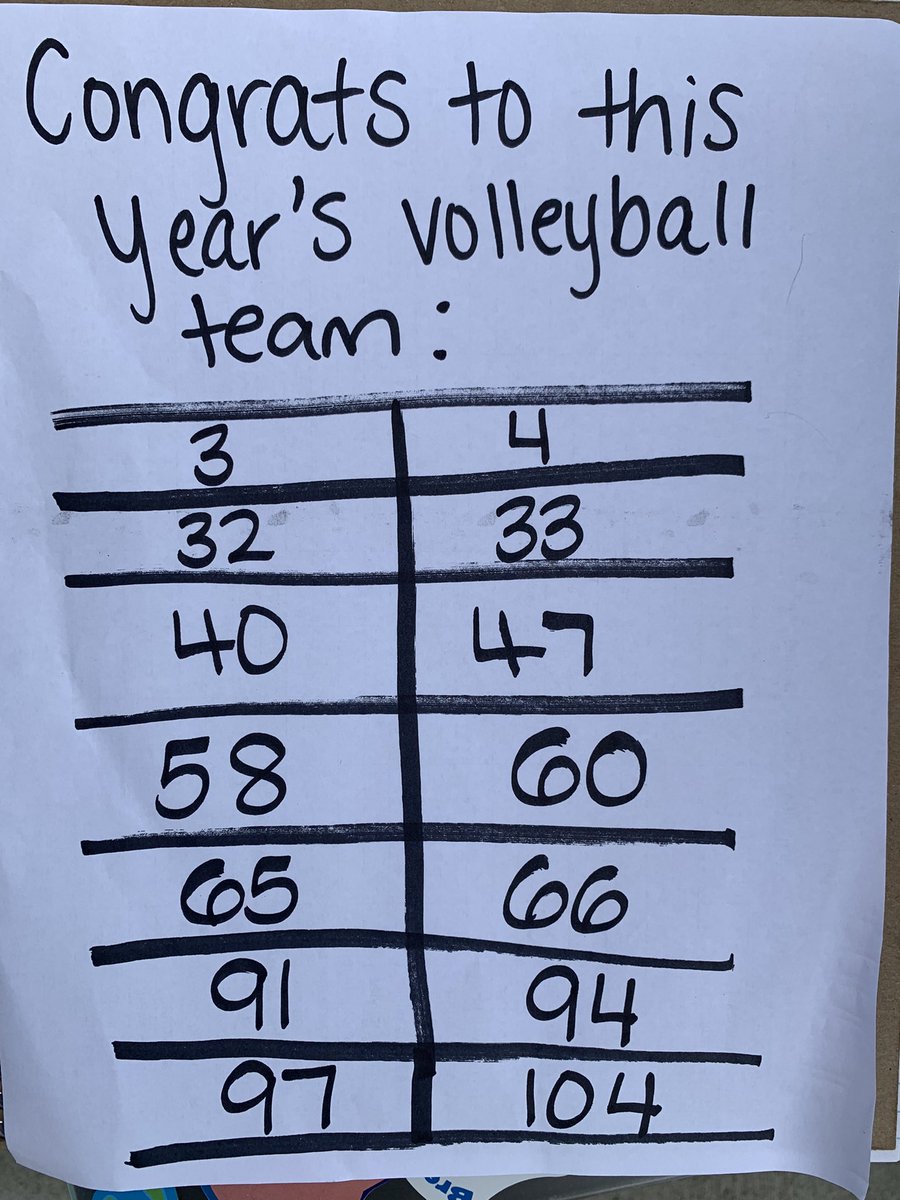 Congrats to this
year's volleyball
team:
3 4
32 33
40 47
58 60
65 66
91 94
97 104